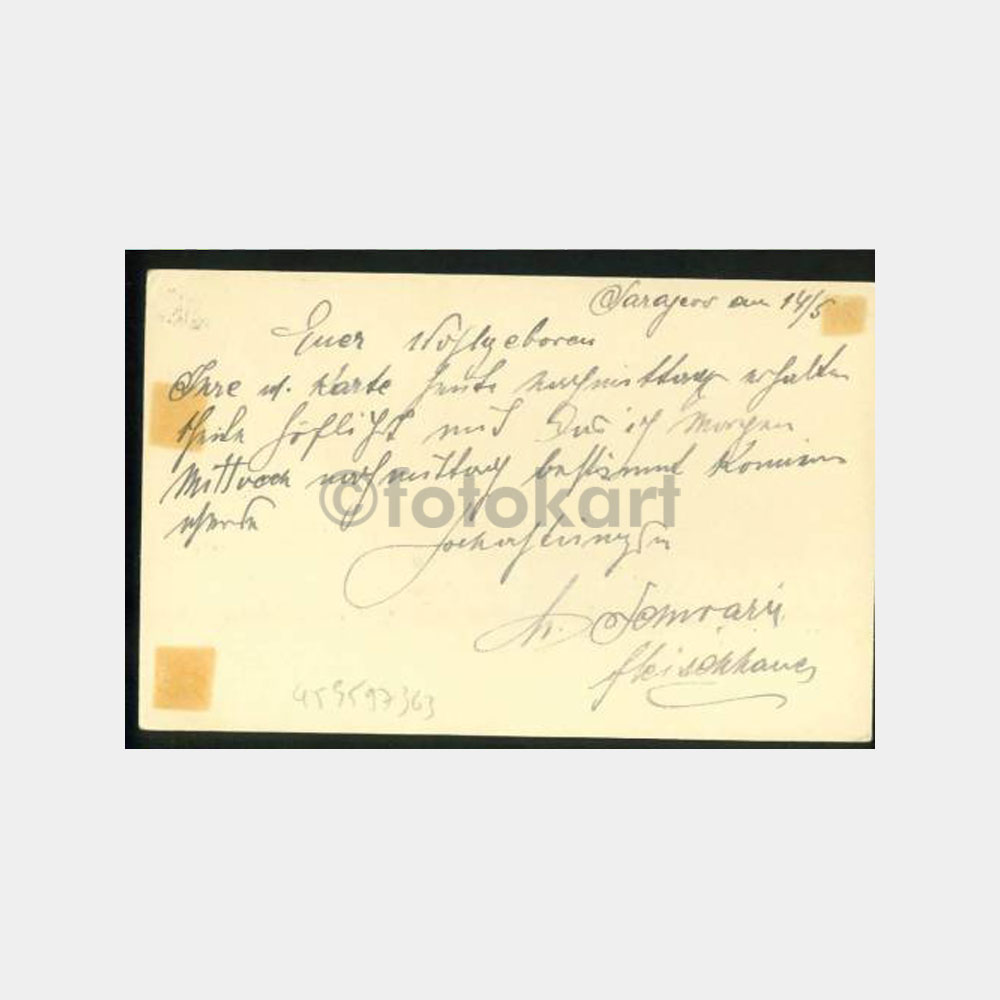 Sarajevo am 14/5
Euer Wohlgeboren
Ihre w. Karte heute nachmittag erhalten
theile höflichst mit das ich Morgen
Mittwoch nachmittag bestimmt kommen
werde
©fotokart
Hochachtungsv
Schwarz
Fleischhauer
459597363